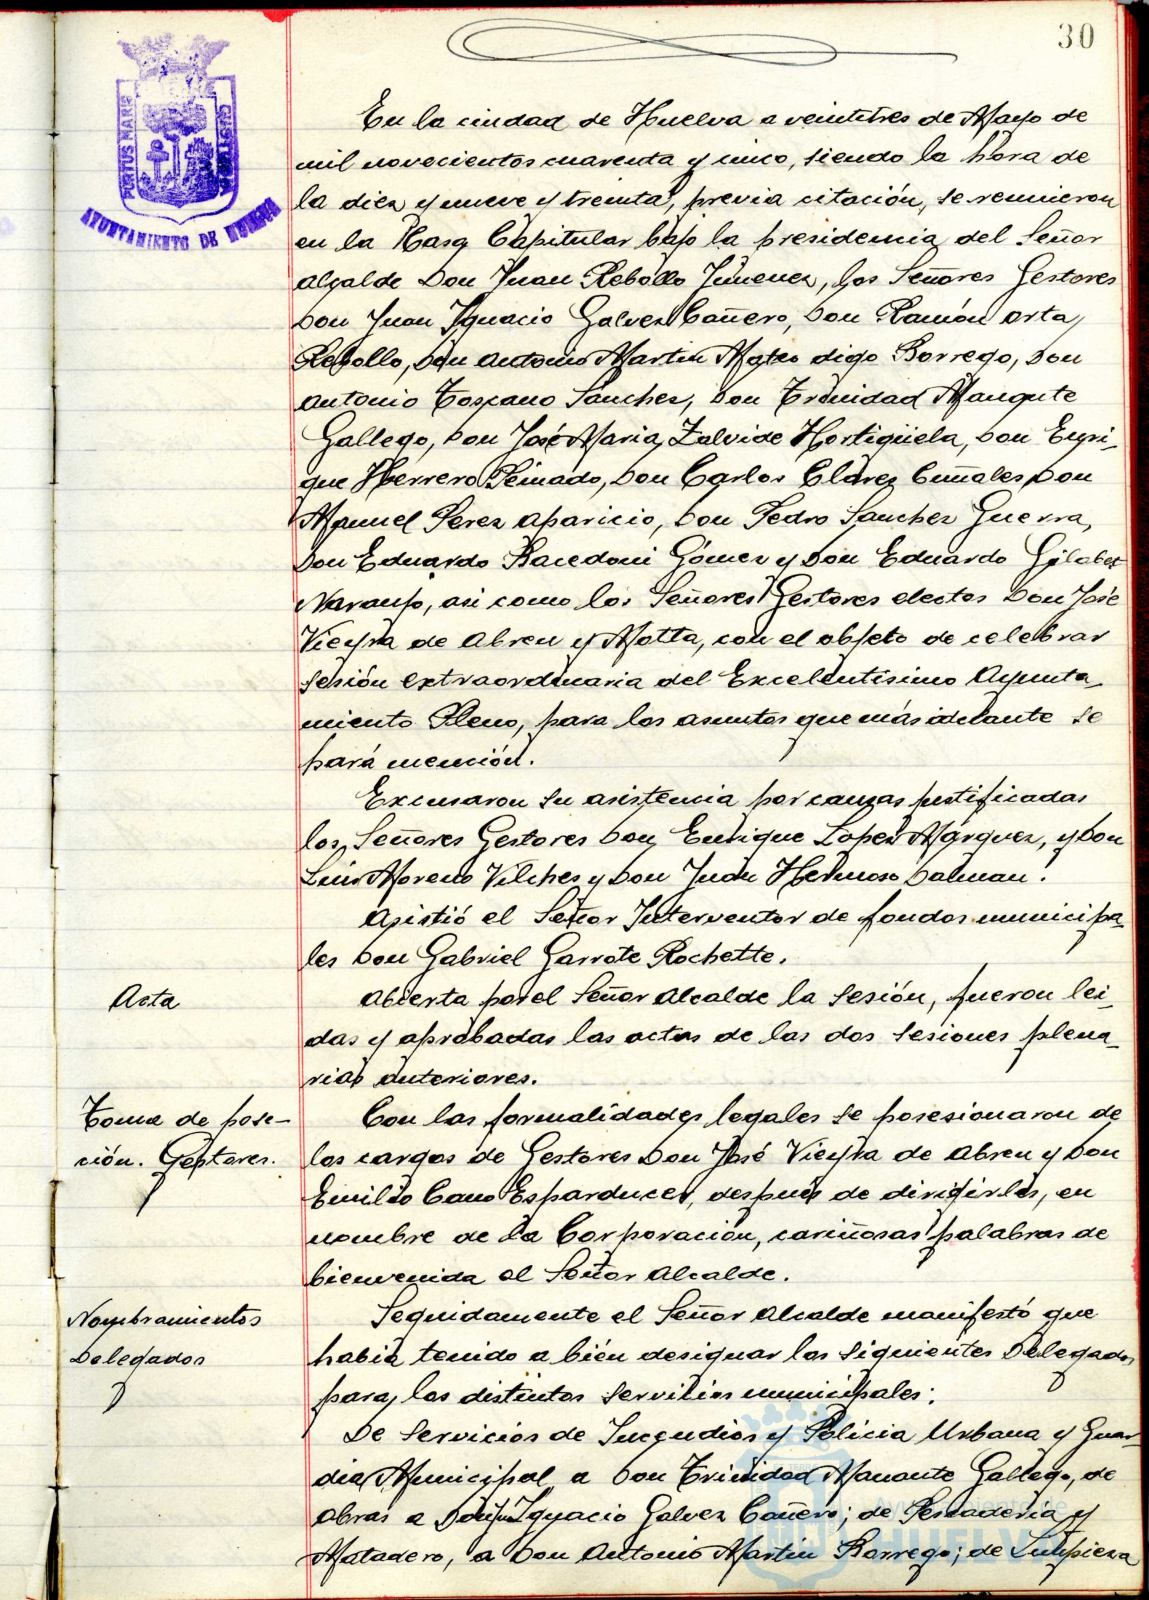 30
PORTUS MARIS
CUSTODIA
AYUNTAMIENTO DE HUELVA
En la ciudad de Huelva a veintitres de Mayo de
mil novecientos cuarenta y cinco, siendo la hora de
la diez y nueve y treinta, previa citación, se reunieron
en la Casa Capitular bajo la presidencia del Señor
Alcalde Don Juan Rebollo Jimenez, los Señores Gestores
Don Juan Ygnacio Galvez Cañero, Don Ramón Orta
Rebollo, Don Antonio Martin Mateo digo Borrego, Don
Antonio Toscano Sanchez, Don Trinidad Manante
Gallego, Don José Maria Zalvide Hortigüela, Don Enri-
que Herrero Peinado, Don Carlos Don
Manuel Perez Aparicio, Don Pedro Sanchez Guerra,
Don Eduardo Racedoni Gómez y Don Eduardo Gilabet
Naranjo, asi como los Señores Gestores electos Don José
Vieyra de Abreu y Motta, con el objeto de celebrar
sesión extraordinaria del Excelentisimo Ayunta-
miento Pleno, para los asuntos que más adelante se
hará mención.
Excusaron su asistencia por causas justificadas
los Señores Gestores Don Enrique Lopez Márquez, y Don
Luis Moreno Vilches y Don Hermoso
Asistió el Señor Interventor de fondos municipa-
les Don Gabriel Garrote Rochette.
Acta
Abierta por el Señor Alcalde la Sesión, fueron lei-
das y aprobadas las actas de las dos sesiones plena-
rias anteriores.
Toma de pose-
ción. Gestores.
Con las formalidades legales se posesionaron de
los cargos de Gestores Don José Vieyra de Abreu y Don
Emilio Cano Esparducer, después de dirigirles, en
nombre de la Corporación, cariñosas palabras de
bienvenida el Señor Alcalde.
Nombramientos
Delegados
Seguidamente el Señor Alcalde manifestó que
habia tenido a bién designar los siguientes Delegados
para los distintos servicios municipales:
De Servicios de Incendios y Policia Urbana y Guar-
dia Municipal a Don Trinidad Manante Gallego, de
Obras a Ygnacio Galvez Cañero; de Pescaderia y
Matadero, a Don Antonio Martin Borrego; de Limpieza
Ayuntamiento de
HUELVA